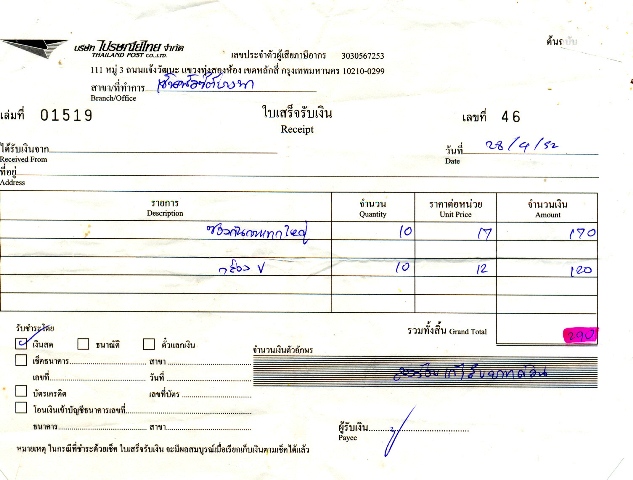 ต้นฉบับ
บริษัท ไปรษณีย์ไทย จำกัด
THAILAND POST CO.,LTD.
เลขประจำตัวผู้เสียภาษีอากร 3030567253
111 หมู่ 3 ถนนแจ้งวัฒนะ แขวงทุ่งสองห้อง เขตหลักสี่ กรุงเทพมหานคร 10210-0299
สาขา/ที่ทำการ
Branch/Office
เล่มที่ 01519 ใบเสร็จรับเงิน เลขที่ 46
Receipt
ได้รับเงินจาก วันที่ 28/4/52
Received From Date
ที่อยู่
Address
รายการ จำนวน ราคาต่อหน่วย จำนวนเงิน
Description Quantity Unit Price Amount
ซองกันกระแทกใหญ่ 10 17 170
กล่อง ข 10 12 120
รวมทั้งสิ้น Grand Total 290
รับชำระโดย
เงินสด ธนาณัติ ตั๋วแลกเงิน
จำนวนเงินตัวอักษร
เช็คธนาคาร สาขา
สองร้อยเก้าสิบบาทถ้วน
เลขที่ วันที่
บัตรเครดิต เลขที่บัตร
โอนเงินเข้าบัญชีธนาคารเลขที่
ธนาคาร สาขา
ผู้รับเงิน
Payee
หมายเหตุ ในกรณีที่ชำระด้วยเช็ค ใบเสร็จรับเงิน จะมีผลสมบูรณ์เมื่อเรียกเก็บเงินตามเช็คได้แล้ว